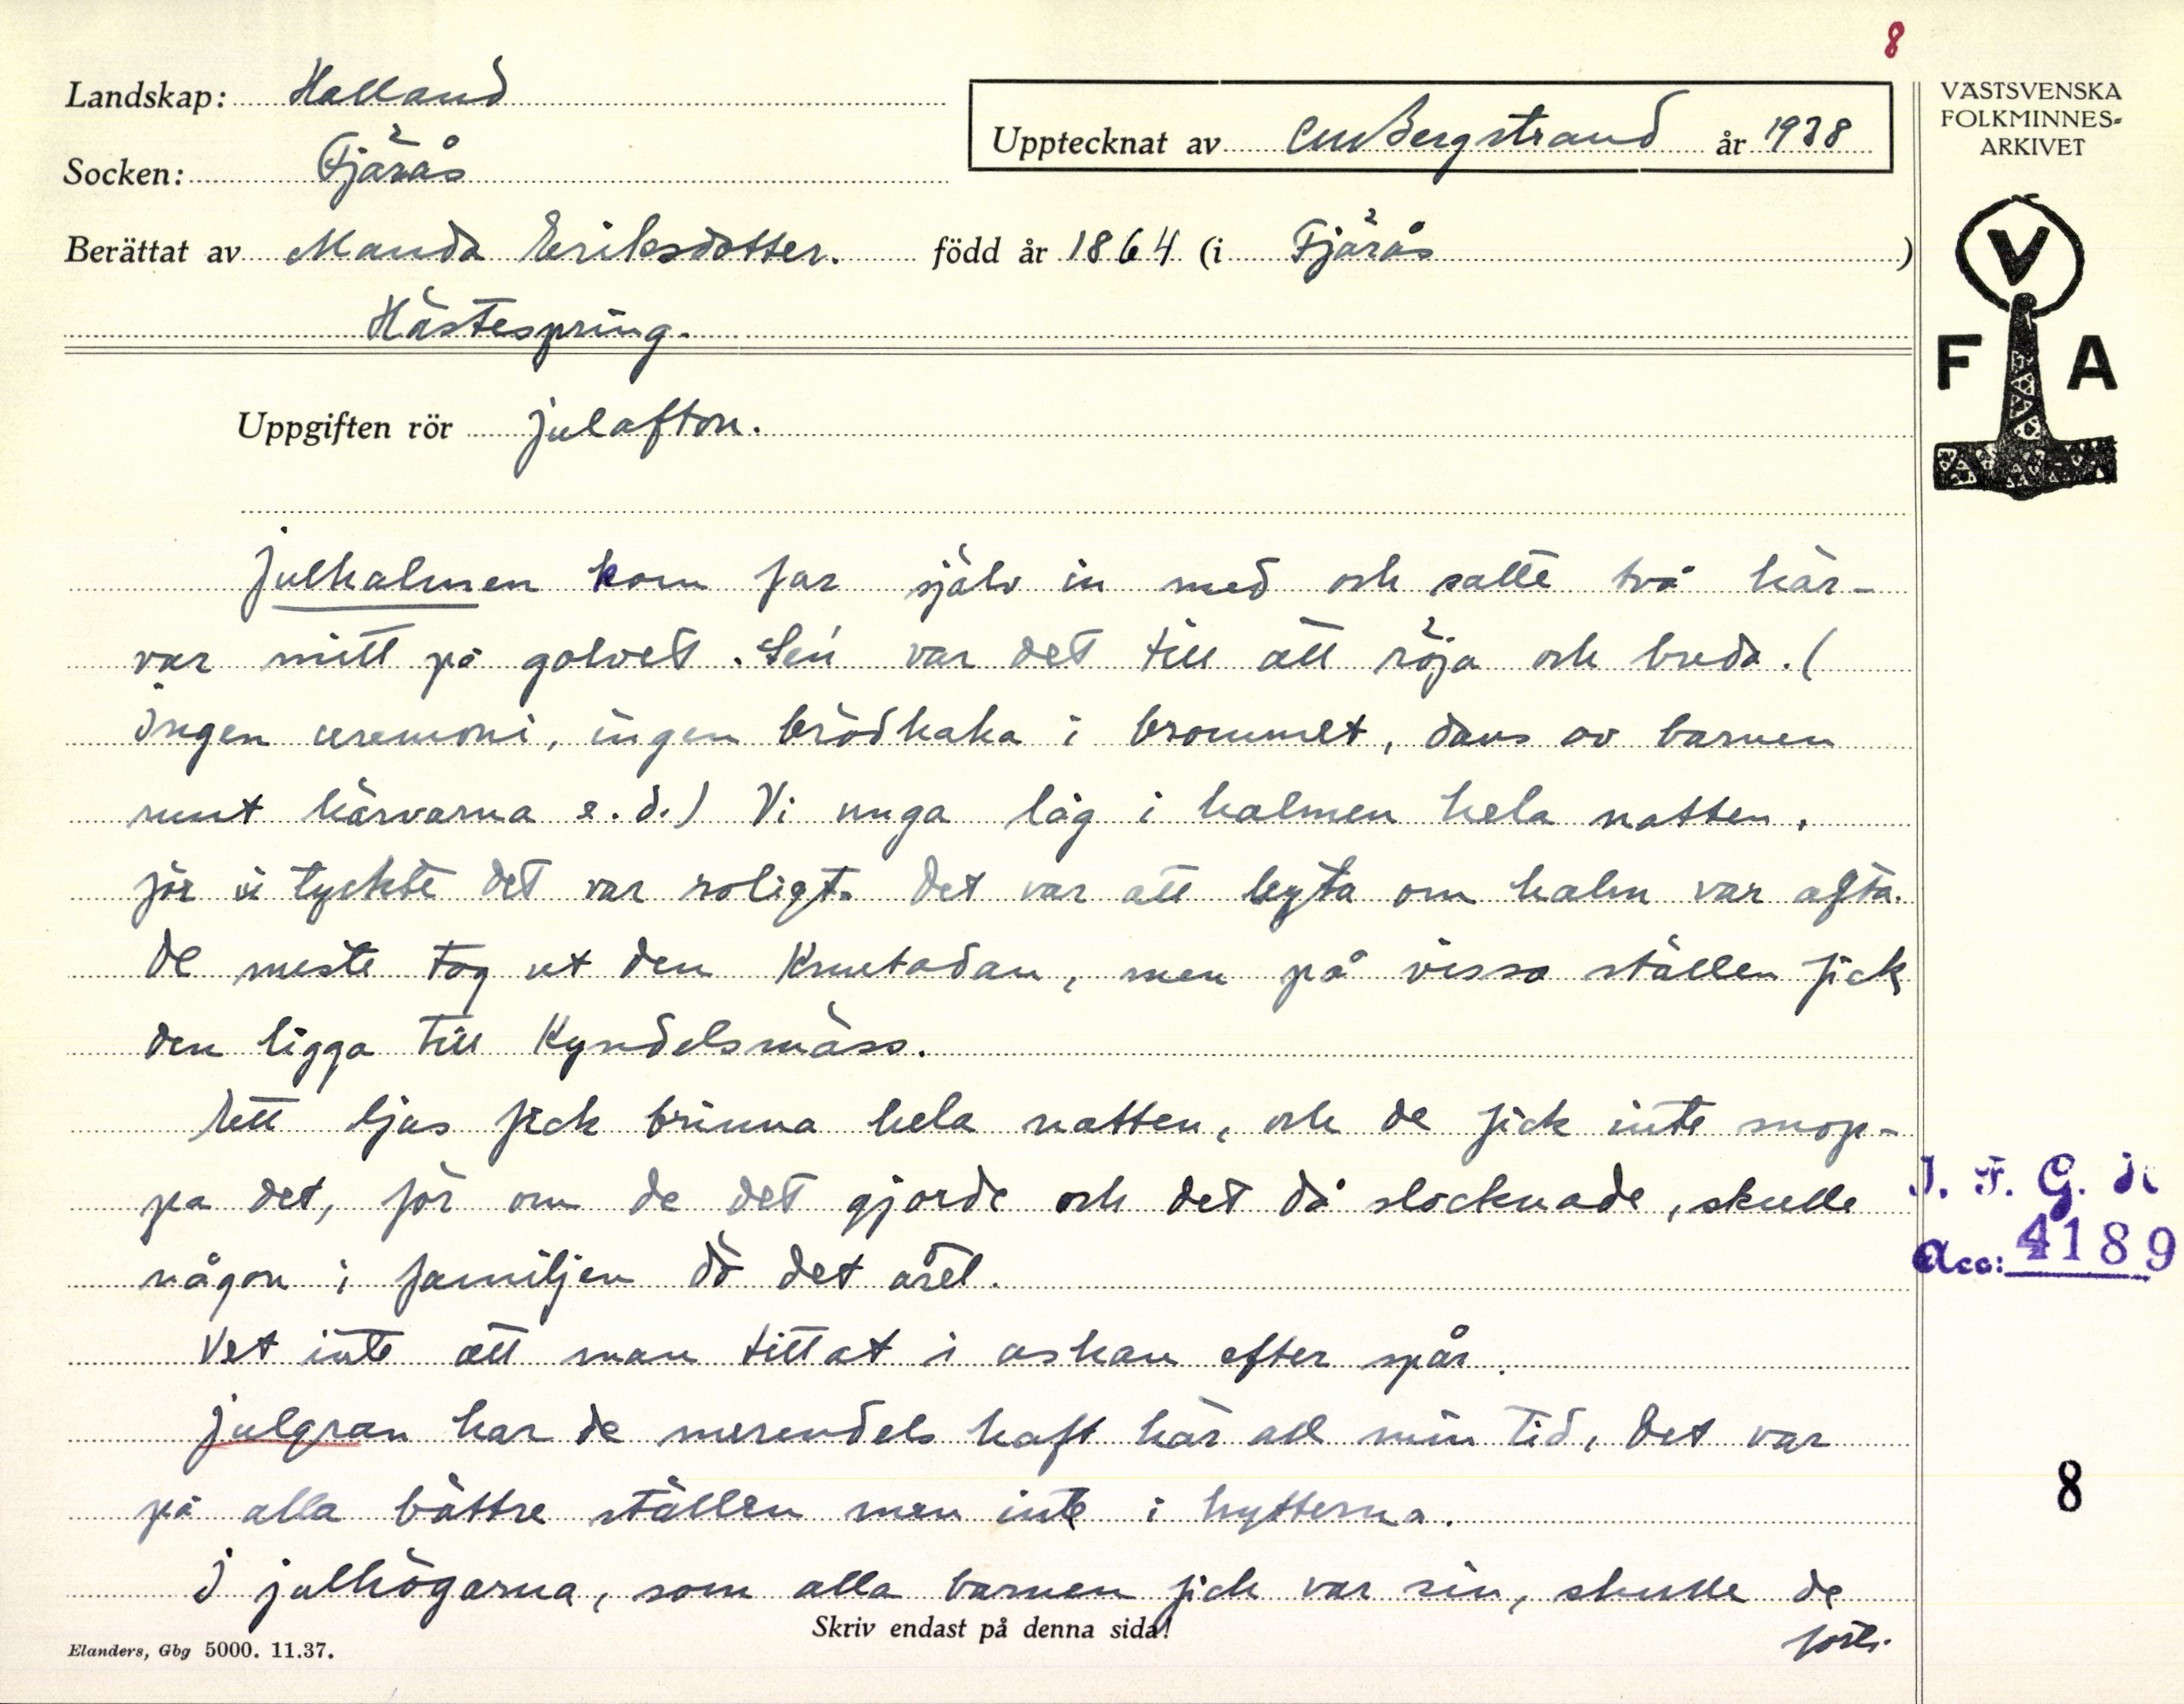 8
Landskap: Halland
Socken: Fjärås
Upptecknat av CMBergstrand år 1938
Berättat av Manda Eriksdotter. född år 1864 (i Fjärås)
Hästespring.
VÄSTSVENSKA
FOLKMINNES-
ARKIVET
V
F A
Uppgiften rör julafton.
Julhalmen kom far själv in med och satte två kär-
var mitt på golvet. Sen var det till att röja och breda. (
Ingen ceremoni, ingen brödkaka i brommet, dans av barnen
runt kärvarna e.d.) Vi unga låg i halmen hela natten,
för vi tyckte det var roligt. Det var att byta om halm var afta.
De meste tog ut den Knutadan, men på vissa ställen fick
den ligga till Kyndelsmäss.
Ett ljus fick brinna hela natten, och de fick inte snop-
pa det, för om de det gjorde och det då slocknade, skulle
någon i familjen dö det året.
Vet inte att man tittat i askan efter spår.
Julgran har de merendels haft här all min tid, det var
på alla bättre ställen men inte i hytterna.
I julhögarna, som alla barnen fick var sin, skulle de
forts.
I. F. G. H
Acc: 4189
8
Skriv endast på denna sida!
Elanders, Gbg 5000. 11.37.